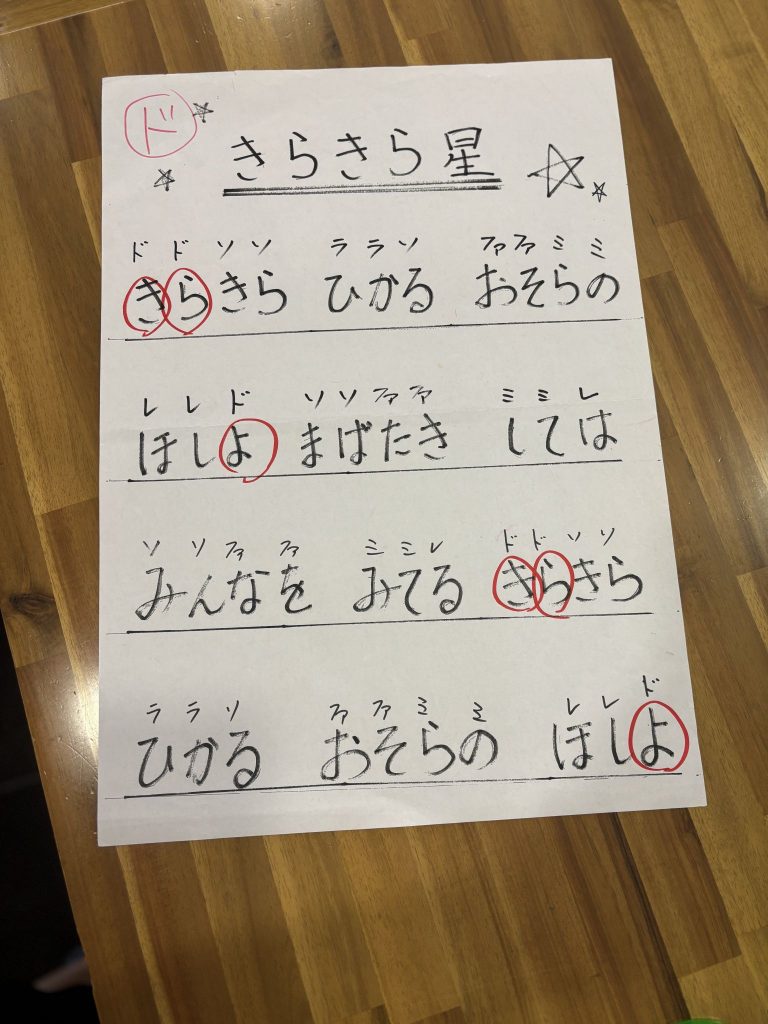 ド
きらきら星
ド ド ソ ソ ラ ラ ソ ファ ファ ミ ミ
きらきら ひかる おそらの
レ レ ド ソ ソ ファ ファ ミ ミ レ
ほしよ まばたき しては
ソ ソ ファ ファ ミ ミ レ ド ド ソ ソ
みんなを みてる きらきら
ラ ラ ソ ファ ファ ミ ミ レ レ ド
ひかる おそらの ほしよ